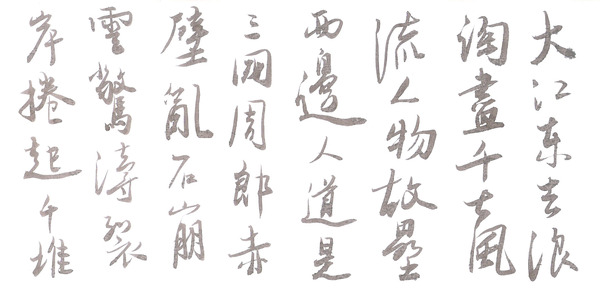 大江東去浪
淘盡千古風
流人物故壘
西邊人道是
三國周郎赤
壁亂石崩
雲驚濤裂
岸捲起千堆